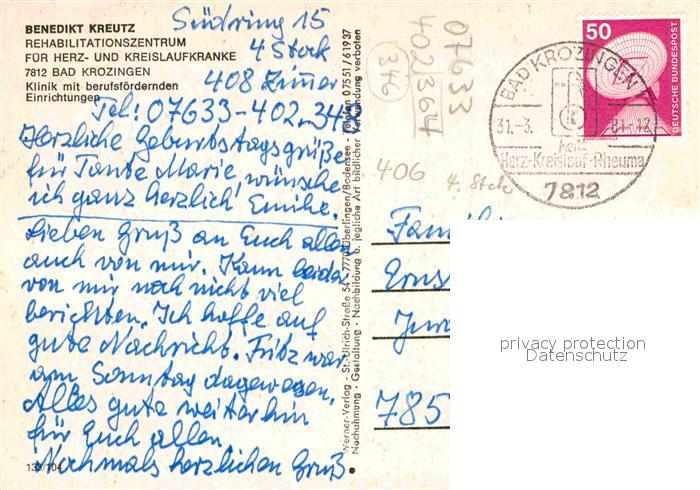 BENEDIKT KREUTZ
REHABILITATIONSZENTRUM
FÜR HERZ- UND KREISLAUFKRANKE
7812 BAD KROZINGEN
Klinik mit berufsfördernden
Einrichtungen
Südring 15
4 Stock
408 Zimmer
Tel: 07633-402.34
Herzliche Geburtstagsgrüße
für Tante Marie, wünsche
ich ganz herzlich Emilie.
Lieben Gruß an Euch allen
auch von mir. Kann leider
von mir noch nicht viel
berichten. Ich hoffe auf
gute Nachricht. Fritz war
am Sonntag dagewesen.
Alles gute weiterhin
für Euch allen
Nochmals herzlichen Gruß
Werner-Verlag · St.-Ulrich-Straße 54 · 7770 Überlingen/Bodensee · Telefon 07551/61937
Nachahmung · Gestaltung · Nachbildung u. jegliche Art bildlicher Verwendung verboten
07633
402364
(346)
406
4. Stck
50
DEUTSCHE BUNDESPOST
BAD KROZINGEN
31.-3.
Herz-Kreislauf-Rheuma
7812
Famili
Erns
785
privacy protection
Datenschutz